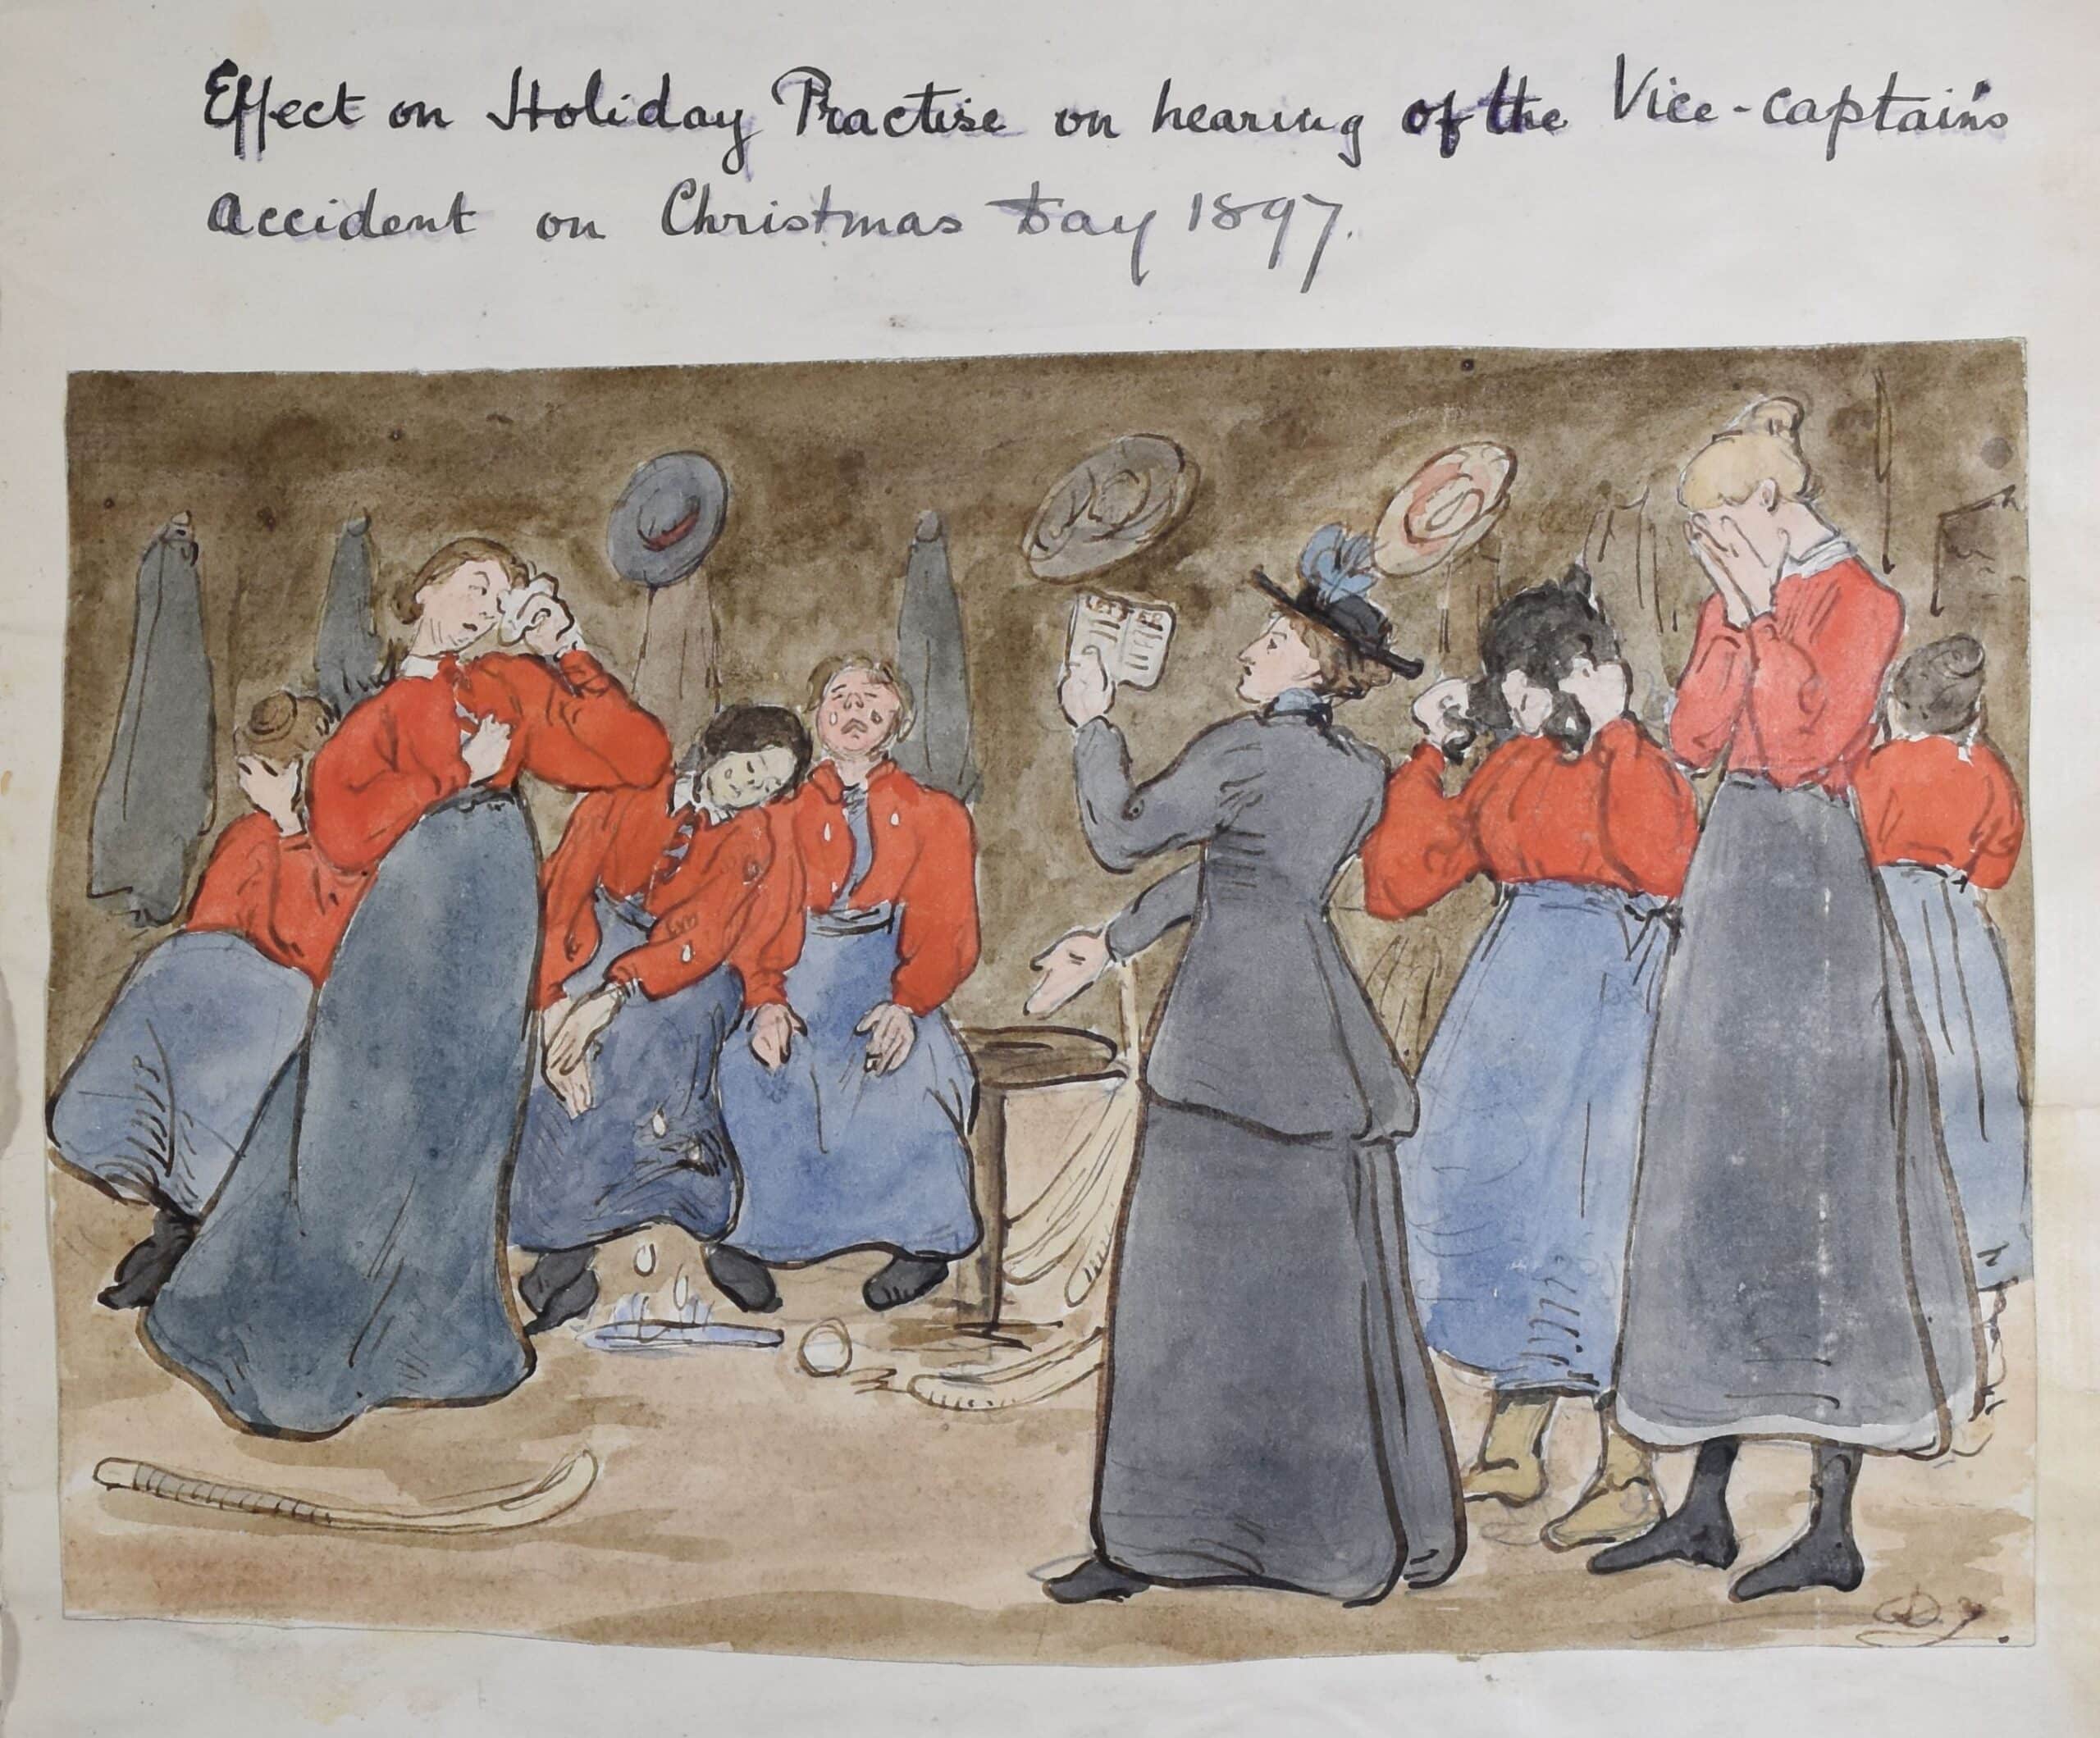 Effect on Holiday Practise on hearing of the Vice-captain's
accident on Christmas Day 1897.